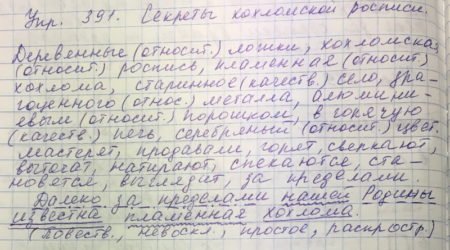 Упр. 391. Секреты хохломской росписи.
Деревенные (относит.) ложки, хохломская
(относит.) роспись, пламенная (относит.)
хохлома, старинное (качеств.) село, дра-
гоценного (относ.) металла, алюмини-
евым (относит.) порошком, в горячую
(качеств.) печь, серебреный (относит.) цвет.
Мастерят, продавали, горят, сверкают,
вытачат, натирают, спекаются, ста-
новятся, выглядит, за пределами.
Далеко за пределами нашей Родины
известна пламенная хохлома.
(Повеств., невоскл., простое, распростр.)